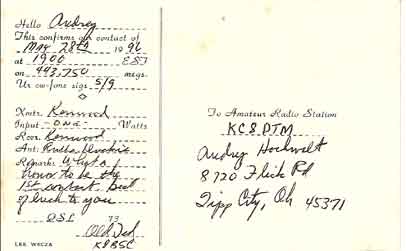 Hello Audrey
This confirms our contact of
May 28th 1996
at 1900 EST
on 443.750 megs.
Ur cw-fone sigs 5/9
Xmtr. Kenwood
Input -ONE- Watts
Rcvr. Kenwood
Ant:
Remarks: What a
honor to be the
1st contact. Best
of luck to you
QSL 73
Old Ted
K8BSC
LEE, W8CZA
To Amateur Radio Station
KC8DTM
Audrey
8720 Flick Rd
Tipp City, Oh 45371